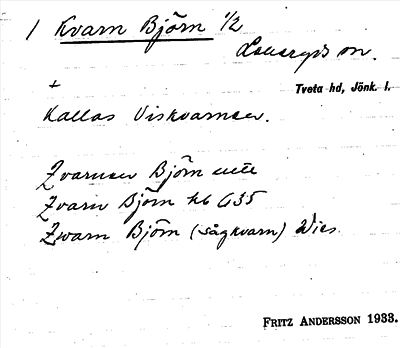 1 Kvarn Björn 1/2
Lekeryds sn.
Tveta hd, Jönk. l.
+
Kallas Viskvarnen.
Zvarnen Björn
Zvarn Björn hb 635
Zwarn Björn (sågkvarn) Wies
FRITZ ANDERSSON 1933.